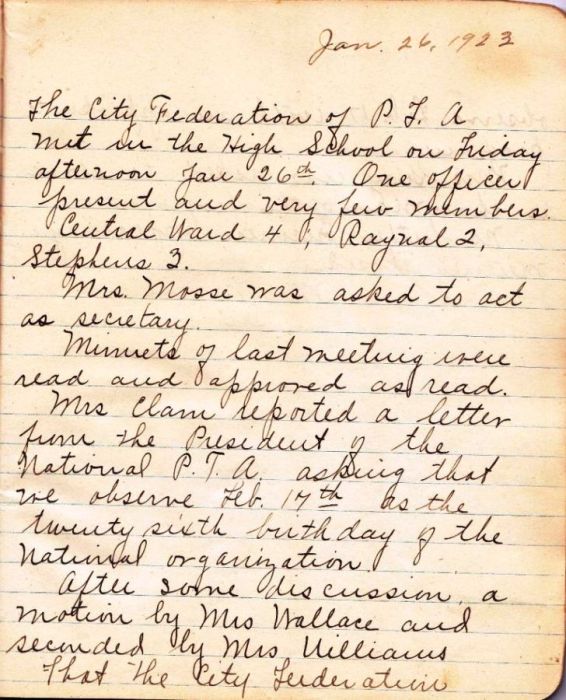 Jan. 26, 1923
The City Federation of P. T. A
met in the High School on Friday
afternoon Jan 26th. One officer
present and very few members.
Central Ward 4, Raynal 2,
Stephens 3.
Mrs. Mosse was asked to act
as secretary.
Minnets of last meeting were
read and approved as read.
Mrs Clam reported a letter
from the President of the
National P. T. A. asking that
we observe Feb. 17th as the
twenty sixth birthday of the
National organization.
After some discussion, a
motion by Mrs Wallace and
seconded by Mrs Williams
that the City Federation